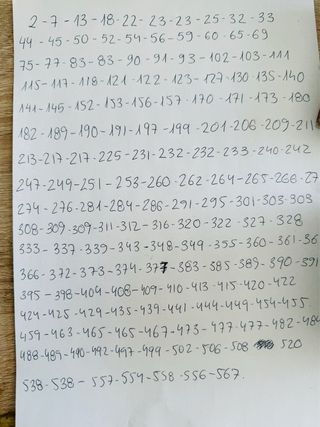 2-7-13-18-22-23-23-25-32-33
44-45-50-52-54-56-59-60-65-69
75-77-83-83-90-91-93-102-103-111
115-117-118-121-122-123-127-130-135-140
141-145-152-153-156-157-170-171-173-180
182-189-190-191-197-199-201-206-209-211
213-217-217-225-231-232-232-233-240-242
247-249-251-253-260-262-264-265-268-27
274-276-281-284-286-291-295-301-303-303
308-309-309-311-312-316-320-322-327-328
333-337-339-343-348-349-355-360-361-36
366-372-373-374-377-383-385-389-390-391
395-398-404-408-409-410-413-415-420-422
424-425-429-435-439-441-444-449-454-455
459-463-465-465-467-473-477-477-482-484
488-489-490-492-497-499-502-506-508 520
538-538-557-554-558-556-567.